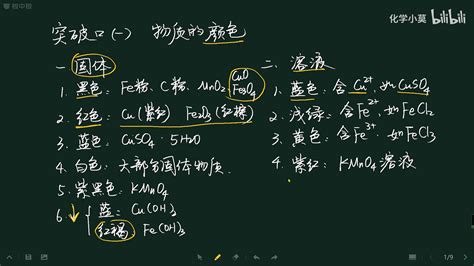 锐中锐
化学小莫 bilibili
突破口(一) 物质的颜色
一 固体
1. 黑色: Fe粉、C粉、MnO₂ CuO
Fe₃O₄
2. 红色: Cu(紫红) Fe₂O₃(红棕)
3. 蓝色: CuSO₄·5H₂O
4. 白色: 大部分固体物质.
5. 紫黑色: KMnO₄
6. ↓ { 蓝: Cu(OH)₂
红褐 Fe(OH)₃
二. 溶液
1. 蓝色: 含Cu²⁺, 如CuSO₄
2. 浅绿: 含Fe²⁺, 如FeCl₂
3. 黄色: 含Fe³⁺, 如FeCl₃
4. 紫红: KMnO₄溶液
1/9